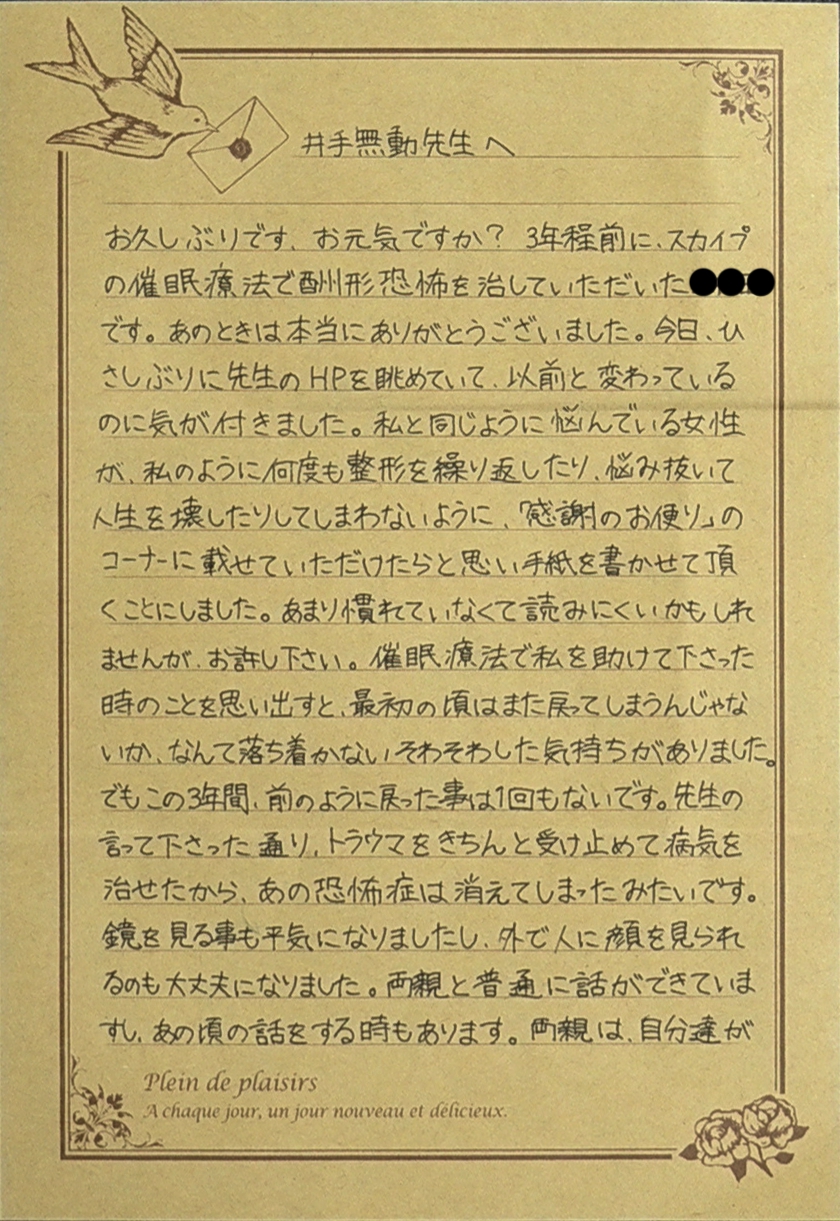 井手無動先生へ
お久しぶりです、お元気ですか？ 3年程前に、スカイプ
の催眠療法で醜形恐怖を治していただいた
です。あのときは本当にありがとうございました。今日、ひ
さしぶりに先生のHPを眺めていて、以前と変わっている
のに気が付きました。私と同じように悩んでいる女性
が、私のように何度も整形を繰り返したり、悩み抜いて
人生を壊したりしてしまわないように、「感謝のお便り」の
コーナーに載せていただけたらと思い手紙を書かせて頂
くことにしました。あまり慣れていなくて読みにくいかもしれ
ませんが、お許し下さい。催眠療法で私を助けて下さった
時のことを思い出すと、最初の頃はまた戻ってしまうんじゃな
いか、なんて落ち着かないそわそわした気持ちがありました。
でもこの3年間、前のように戻った事は1回もないです。先生の
言って下さった通り、トラウマをきちんと受け止めて病気を
治せたから、あの恐怖症は消えてしまったみたいです。
鏡を見る事も平気になりましたし、外で人に顔を見られ
るのも大丈夫になりました。両親と普通に話ができていま
すし、あの頃の話をする時もあります。両親は、自分達が
Plein de plaisirs
A chaque jour, un jour nouveau et délicieux.